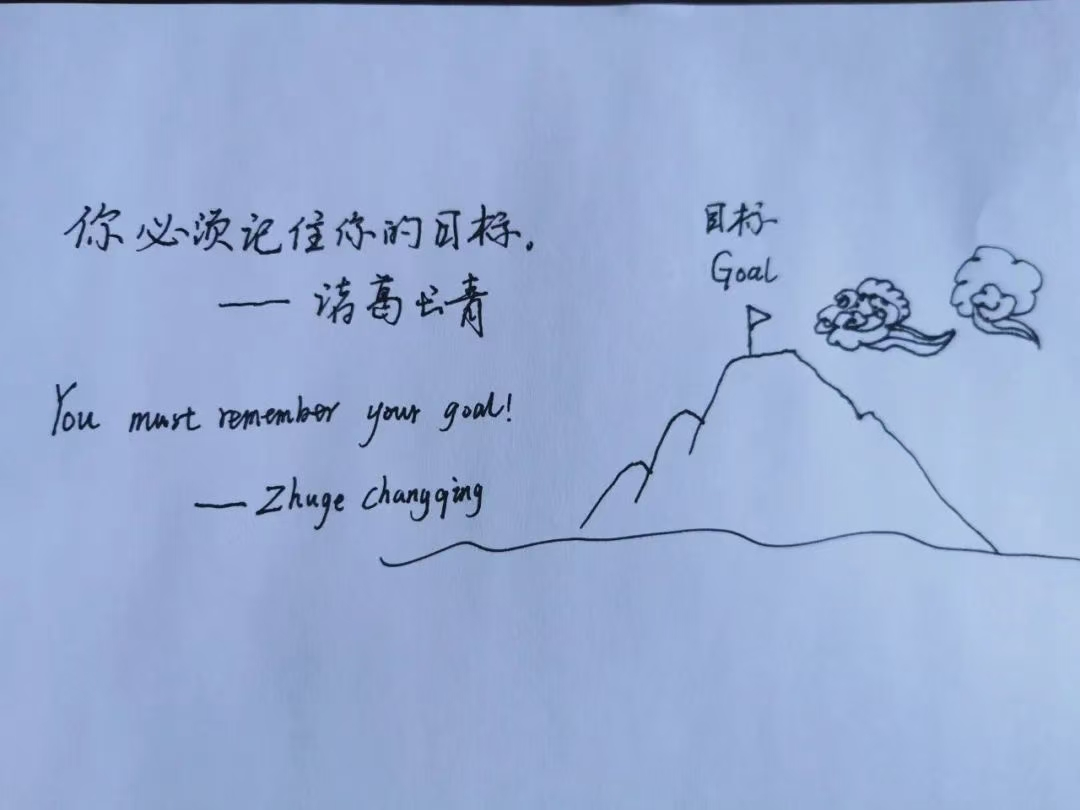 你必须记住你的目标.
—— 诸葛长青
You must remember your goal!
—— Zhuge changqing
目标
Goal